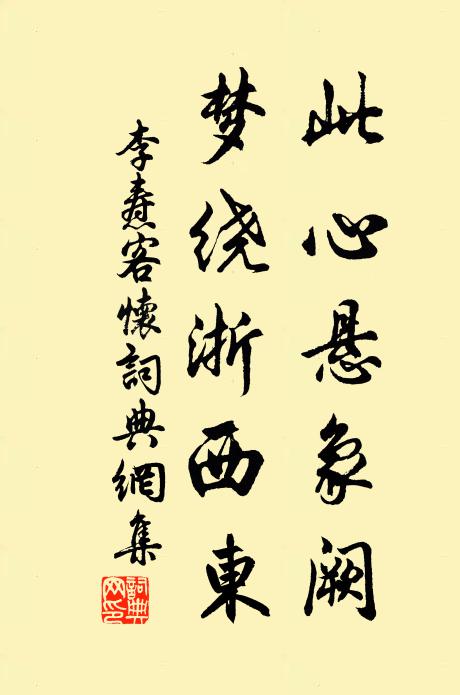 此心悬象阙
梦绕浙西東
李焘客懷詞典網集
詞典网印